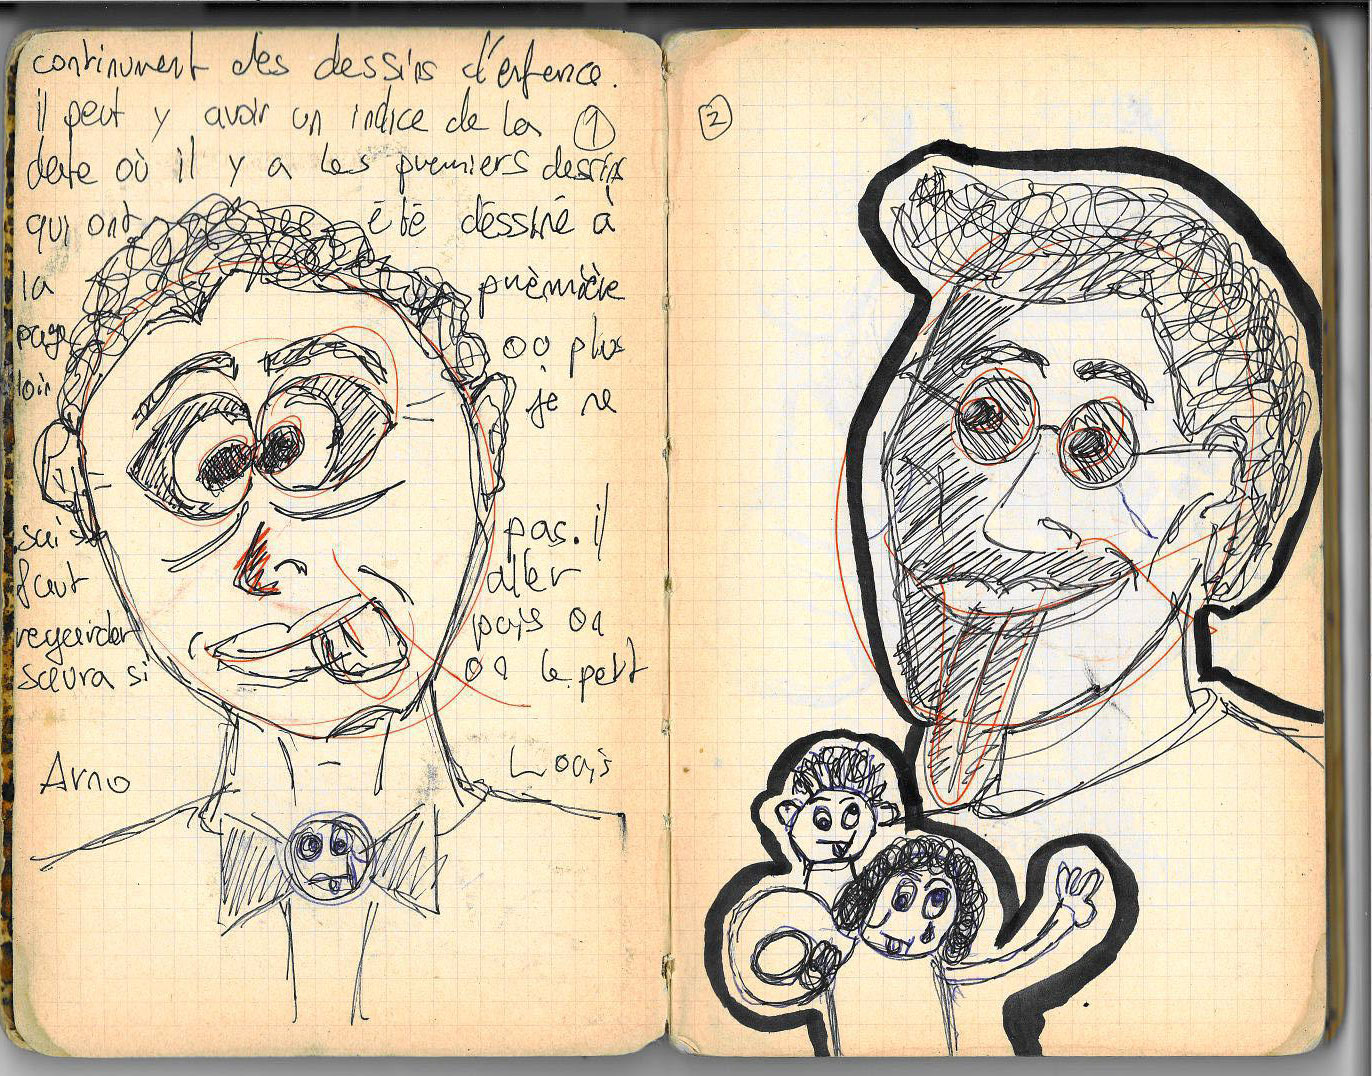 continument des dessins d'enfence.
il peut y avoir un indice de la ①
date où il y a les premiers dessins
qui ont été dessiné à
la prèmière
page oo plus
loin je ne
sais pas. il
faut aller
regarder pais on
sœura si on le peut
Arno Loais
2